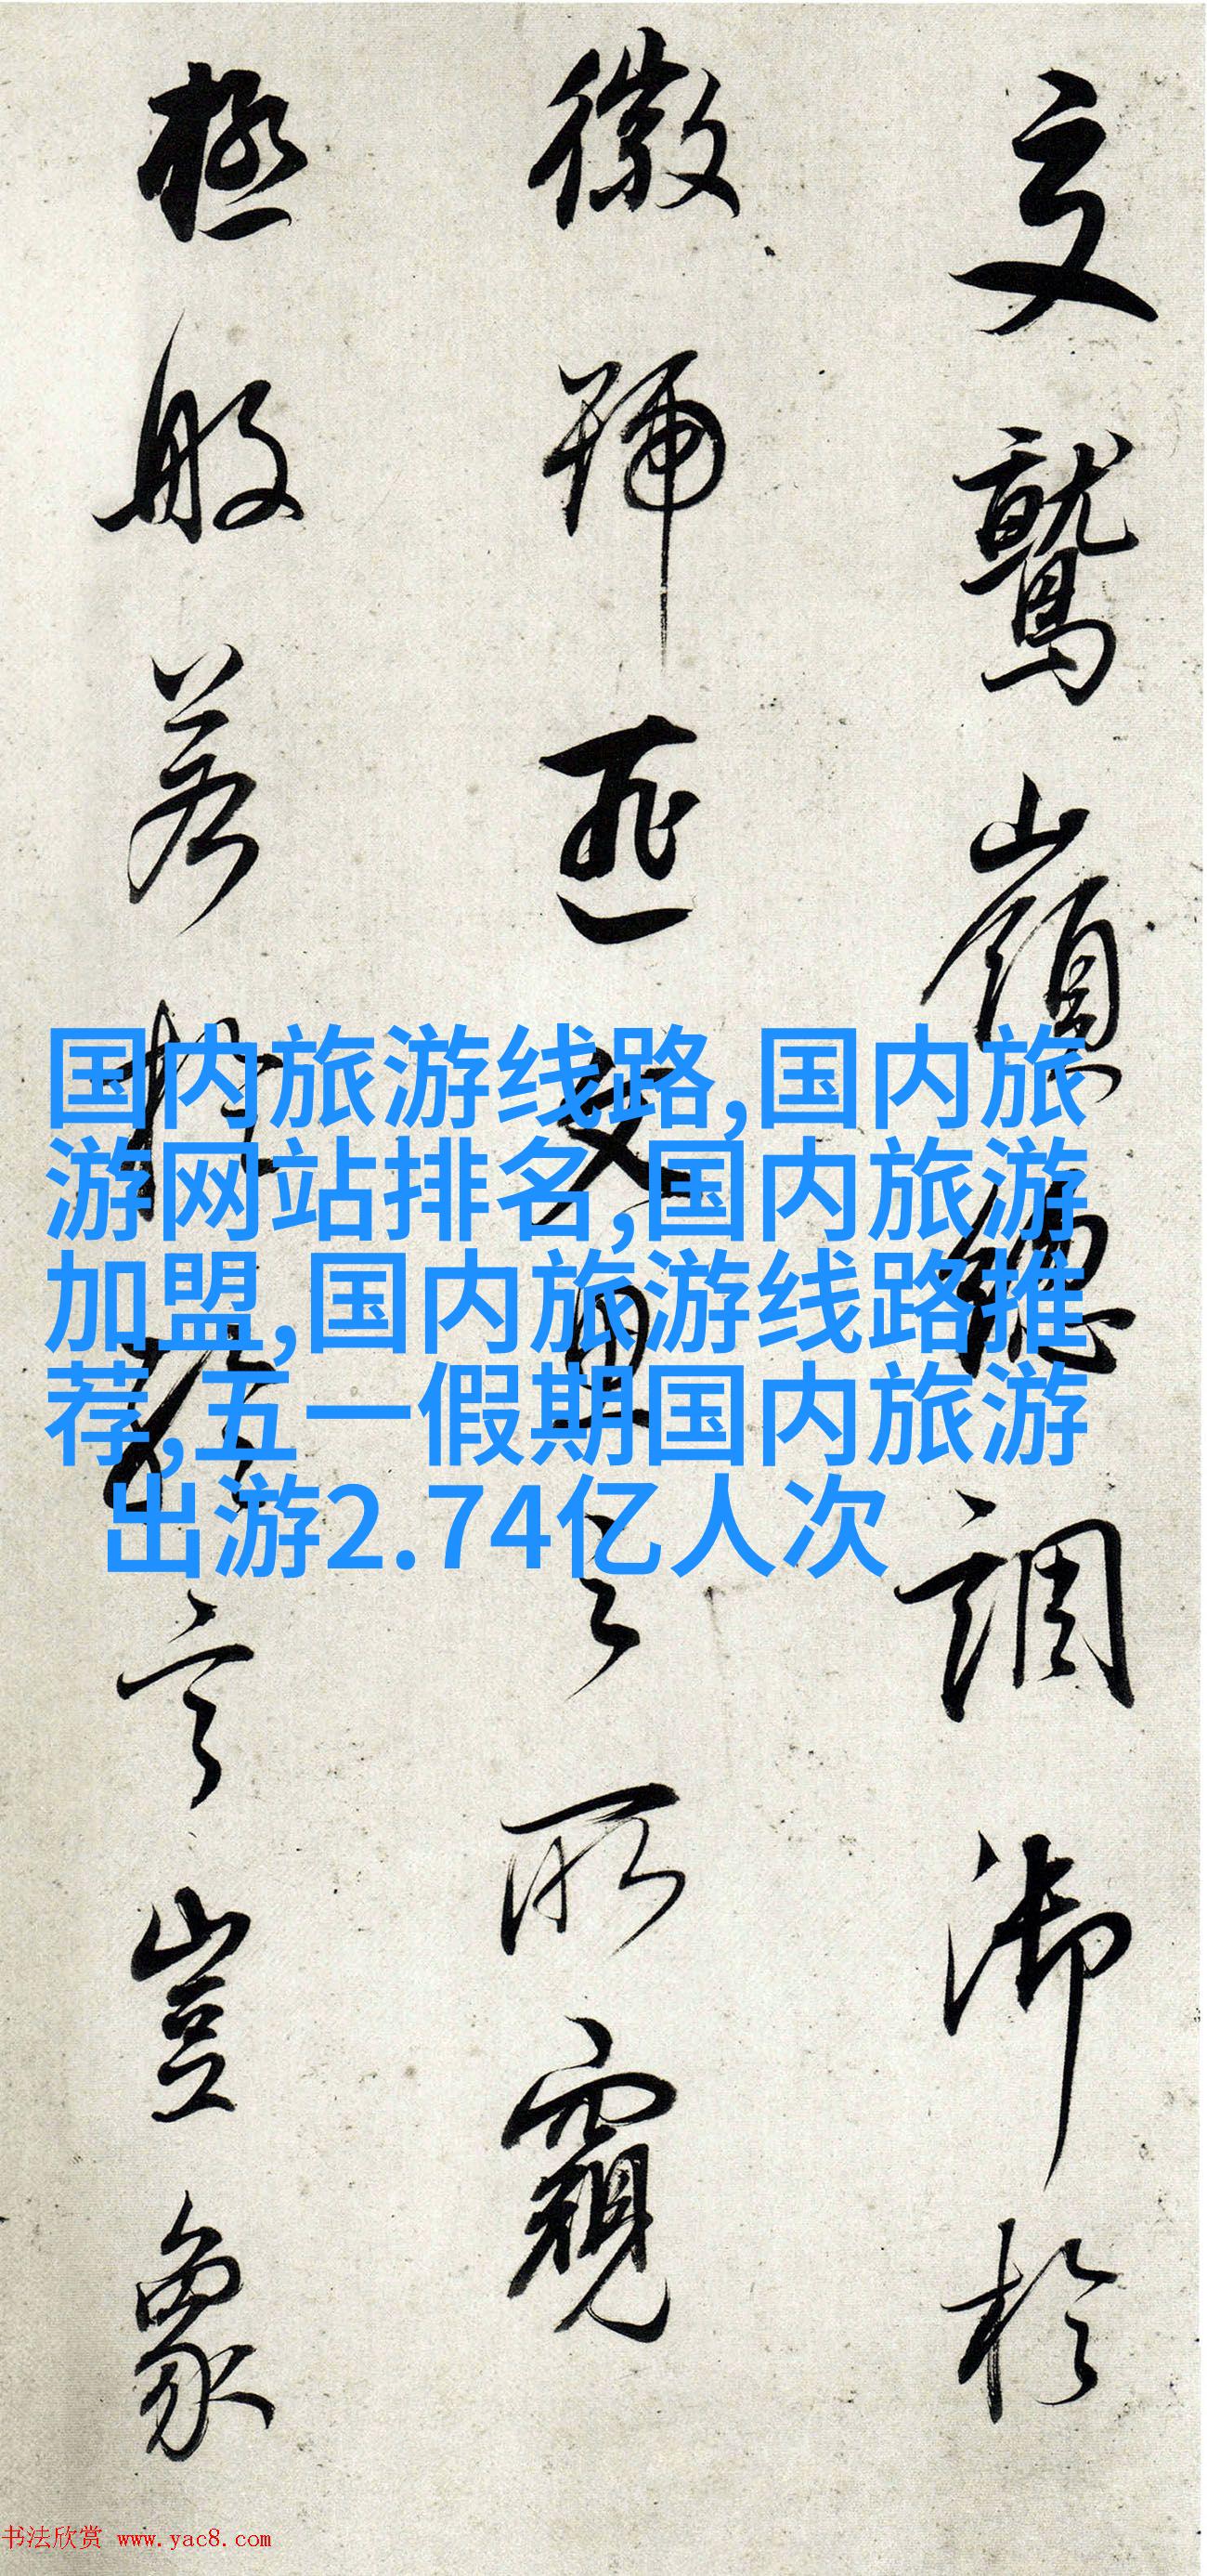 文鷲嶺聴調御於
徽號匪文思之所窺
極般若於真言豈象
国内旅游线路,国内旅
游网站排名,国内旅游
加盟,国内旅游线路推
荐,五一假期国内旅游
出游2.74亿人次
书法欣赏 www.yac8.com